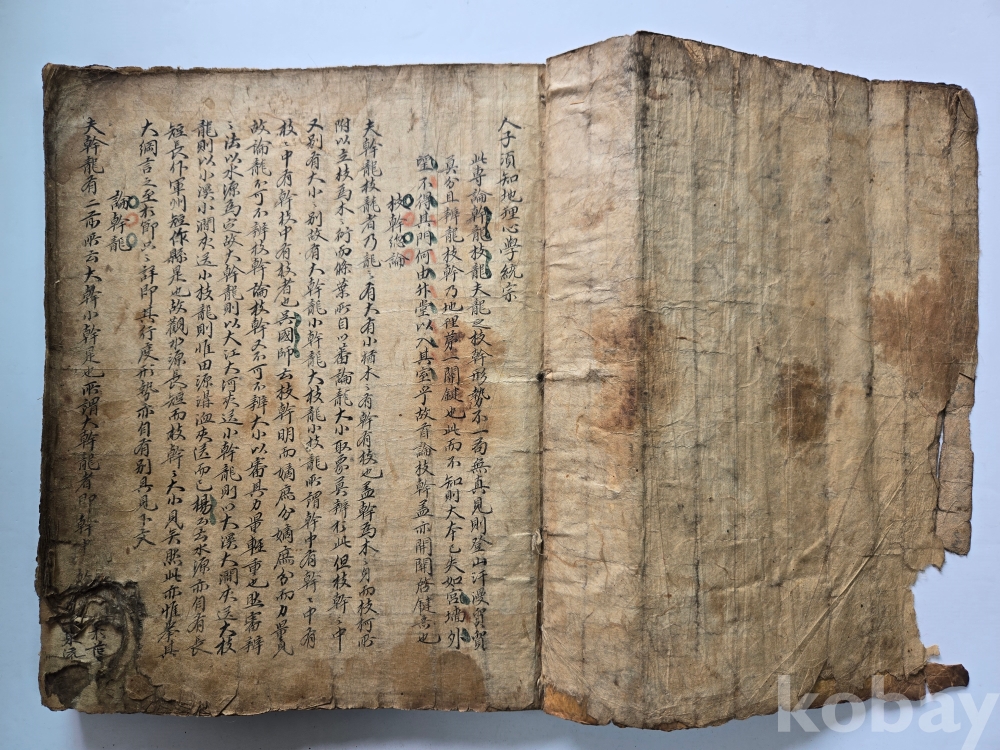 人子須知地理心學統宗
此專論幹龍枝龍夫龍之枝幹形勢不一苟無真見則登山汗漫貿貿
真分且辨龍枝幹乃地理第一關鍵也此而不知則大本已失如宮墻外
望不得其門何由升堂以入其室乎故首論枝幹盖亦開關啓鍵意也
枝幹總論
夫幹龍枝龍者乃龍〻有大有小猶木〻有幹有枝也盖幹爲木〻身而枝柯所
附以立枝爲木〻衍而條葉所自以蕃論龍大小取象莫辨於此但枝幹〻中
又別有大小〻別故有大幹龍小幹龍大枝龍小枝龍所謂幹中有幹〻中有
枝〻中有幹枝中有枝者也吳國師云枝幹明而嫡庶分嫡庶分而力量見
故論龍不可不辨枝幹論枝幹又不可不辨大小以審其力量輕重也然審辨
〻法以水源爲定故大幹龍則以大江大河夾送小幹龍則以大溪大澗夾送大枝
龍則以小溪小澗夾送小枝龍則惟田源溝洫夾送而已楊公云水源亦自有長
短長作軍州短作縣是也故觀水源長短而枝幹〻大小見矣照此亦惟舉其
大綱言之至於節〻詳即其行度形勢亦自有別具見下文
論幹龍
夫幹龍有二前所云大幹小幹是也所謂大幹龍者即幹
kobay